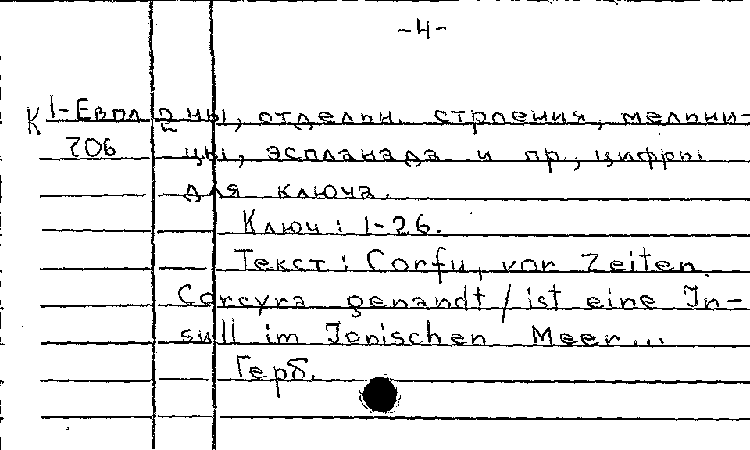 -4-
К 1-Евпл 2 ны, отдельн. строения, мельни-
206 цы, эспланада и пр, цифры
для ключа.
Ключ: 1-26.
Текст: Corfu, vor Zeiten
Corcyra genandt / ist eine In-
sull im Jonischen Meer...
Герб.